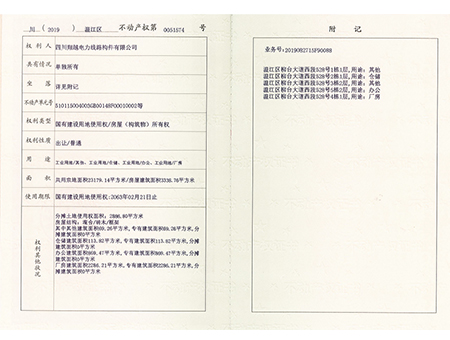 川（2019）温江区 不动产权第 0051574 号
权利人 四川翔越电力线路构件有限公司
共有情况 单独所有
坐落 详见附记
不动产单元号 510115004003GB00148F00010002等
权利类型 国有建设用地使用权/房屋（构筑物）所有权
权利性质 出让/普通
用途 工业用地/其他、工业用地/仓储、工业用地/办公、工业用地/厂房
面积 共用宗地面积23179.14平方米/房屋建筑面积3338.76平方米
使用期限 国有建设用地使用权:2063年02月21日止
权利其他状况
分摊土地使用权面积：2886.80平方米
房屋结构：混合/砖木/框架
其中其他建筑面积69.26平方米,专有建筑面积69.26平方米,分
摊建筑面积0平方米
仓储建筑面积113.82平方米,专有建筑面积113.82平方米,分摊
建筑面积0平方米
办公建筑面积869.47平方米,专有建筑面积869.47平方米,分摊
建筑面积0平方米
厂房建筑面积2286.21平方米,专有建筑面积2286.21平方米,分
摊建筑面积0平方米
附记
业务号:201908271SF90088
温江区柳台大道西段528号1栋1层,用途:其他
温江区柳台大道西段528号2栋1层,用途:仓储
温江区柳台大道西段528号3栋2层,用途:办公
温江区柳台大道西段528号4栋1层,用途:厂房